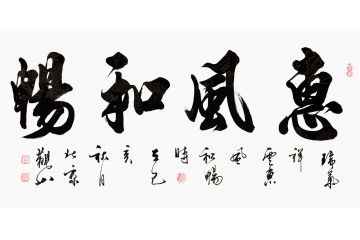 惠風和暢
瑞氣
祥
雲惠
風
和暢
時
在己
亥
秋月
北京
觀山